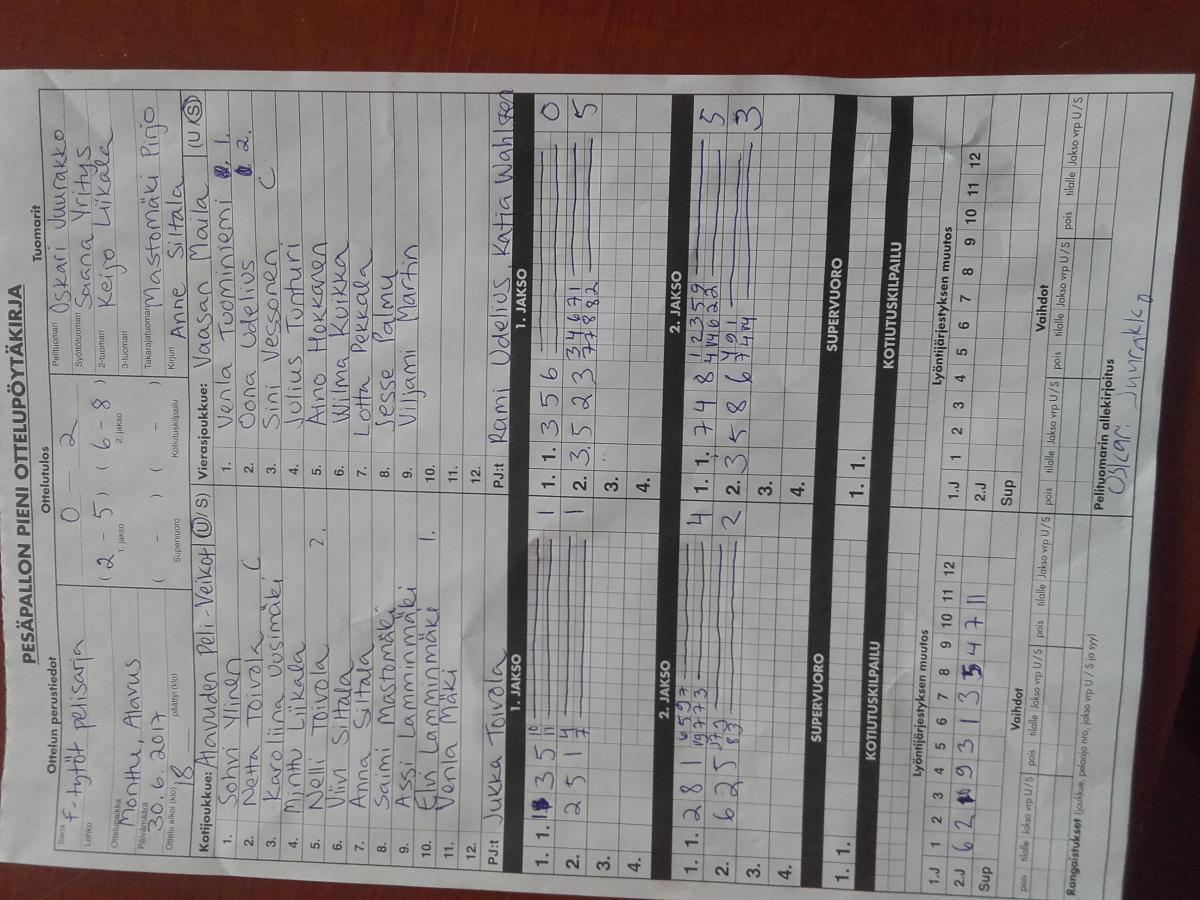 PESÄPALLON PIENI OTTELUPÖYTÄKIRJA
Ottelun perustiedot
Ottelutulos
Tuomarit
Sarja F-tytöt pelisarja
Lohko
Ottelupaikka Monttu, Alavus
Päivämäärä 30.6.2017
Ottelu alkoi (klo) 18 päättyi (klo)
0 2
(2 - 5) (6 - 8)
1. jakso 2. jakso
( - ) ( - )
Supervuoro Kotiutuskilpailu
Pelituomari Oskari Juurakko
Syöttötuomari Saana Yritys
2-tuomari Keijo Liikala
3-tuomari
Takarajatuomari Mastomäki Pirjo
Kirjuri Anne Siltala
Kotijoukkue: Alavuden Peli-Veikot (U/S)
1. Sohvi Ylinen
2. Netta Toivola C
3. Karoliina Uusimäki
4. Minttu Liikala
5. Nelli Toivola 2.
6. Viivi Siltala
7. Anna Siltala
8. Saimi Mastomäki
9. Assi Lamminmäki
10. Elin Lamminmäki 1.
11. Venla Mäki
12.
PJ:t Jukka Toivola
Vierasjoukkue: Vaasan Maila (U/S)
1. Venla Tuominiemi 1.
2. Oona Udelius 2.
3. Sini Vessonen C
4. Julius Tunturi
5. Aino Hokkanen
6. Wilma Kuikka
7. Lotta Pekkala
8. Jesse Palmu
9. Viljami Martin
10.
11.
12.
PJ:t Rami Udelius, Katja Wahlsten
1. JAKSO
1. 1. 3 5 1
2. 2 5 1 1
3.
4.
1. JAKSO
1. 1. 3 5 6 0
2. 3. 5 2 3 5
3.
4.
2. JAKSO
1. 1. 2 8 1 4
2. 6 2 5 2
3.
4.
2. JAKSO
1. 1. 7 4 8 5
2. 3 5 8 6 3
3.
4.
SUPERVUORO
1. 1.
SUPERVUORO
1. 1.
KOTIUTUSKILPAILU
KOTIUTUSKILPAILU
Lyöntijärjestyksen muutos
1.J 1 2 3 4 5 6 7 8 9 10 11 12
2.J 6 2 10 9 3 1 3 5 4 7 11
Sup
Lyöntijärjestyksen muutos
1.J 1 2 3 4 5 6 7 8 9 10 11 12
2.J
Sup
Vaihdot
pois tilalle Jakso vrp U/S pois tilalle Jakso vrp U/S pois tilalle Jakso vrp U/S
Vaihdot
pois tilalle Jakso vrp U/S pois tilalle Jakso vrp U/S pois tilalle Jakso vrp U/S
Rangaistukset (joukkue, pelaaja nro, jakso vrp U / S ja syy)
Pelituomarin allekirjoitus
Oskari Juurakko